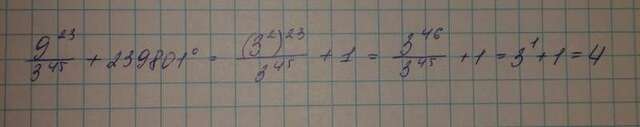 9^23/3^45 + 239801^0 = (3^2)^23/3^45 + 1 = 3^46/3^45 + 1 = 3^1 + 1 = 4